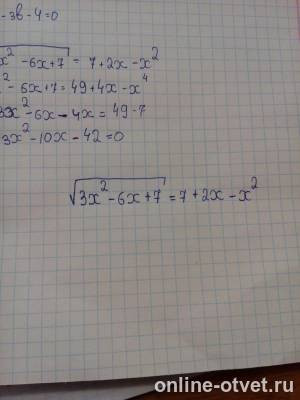 - 3в - 4 = 0
x² - 6x + 7 = 7 + 2x - x²
² - 6x + 7 = 49 + 4x - x⁴
3x² - 6x - 4x = 49 - 7
3x² - 10x - 42 = 0
√3x² - 6x + 7 = 7 + 2x - x²
online-otvet.ru